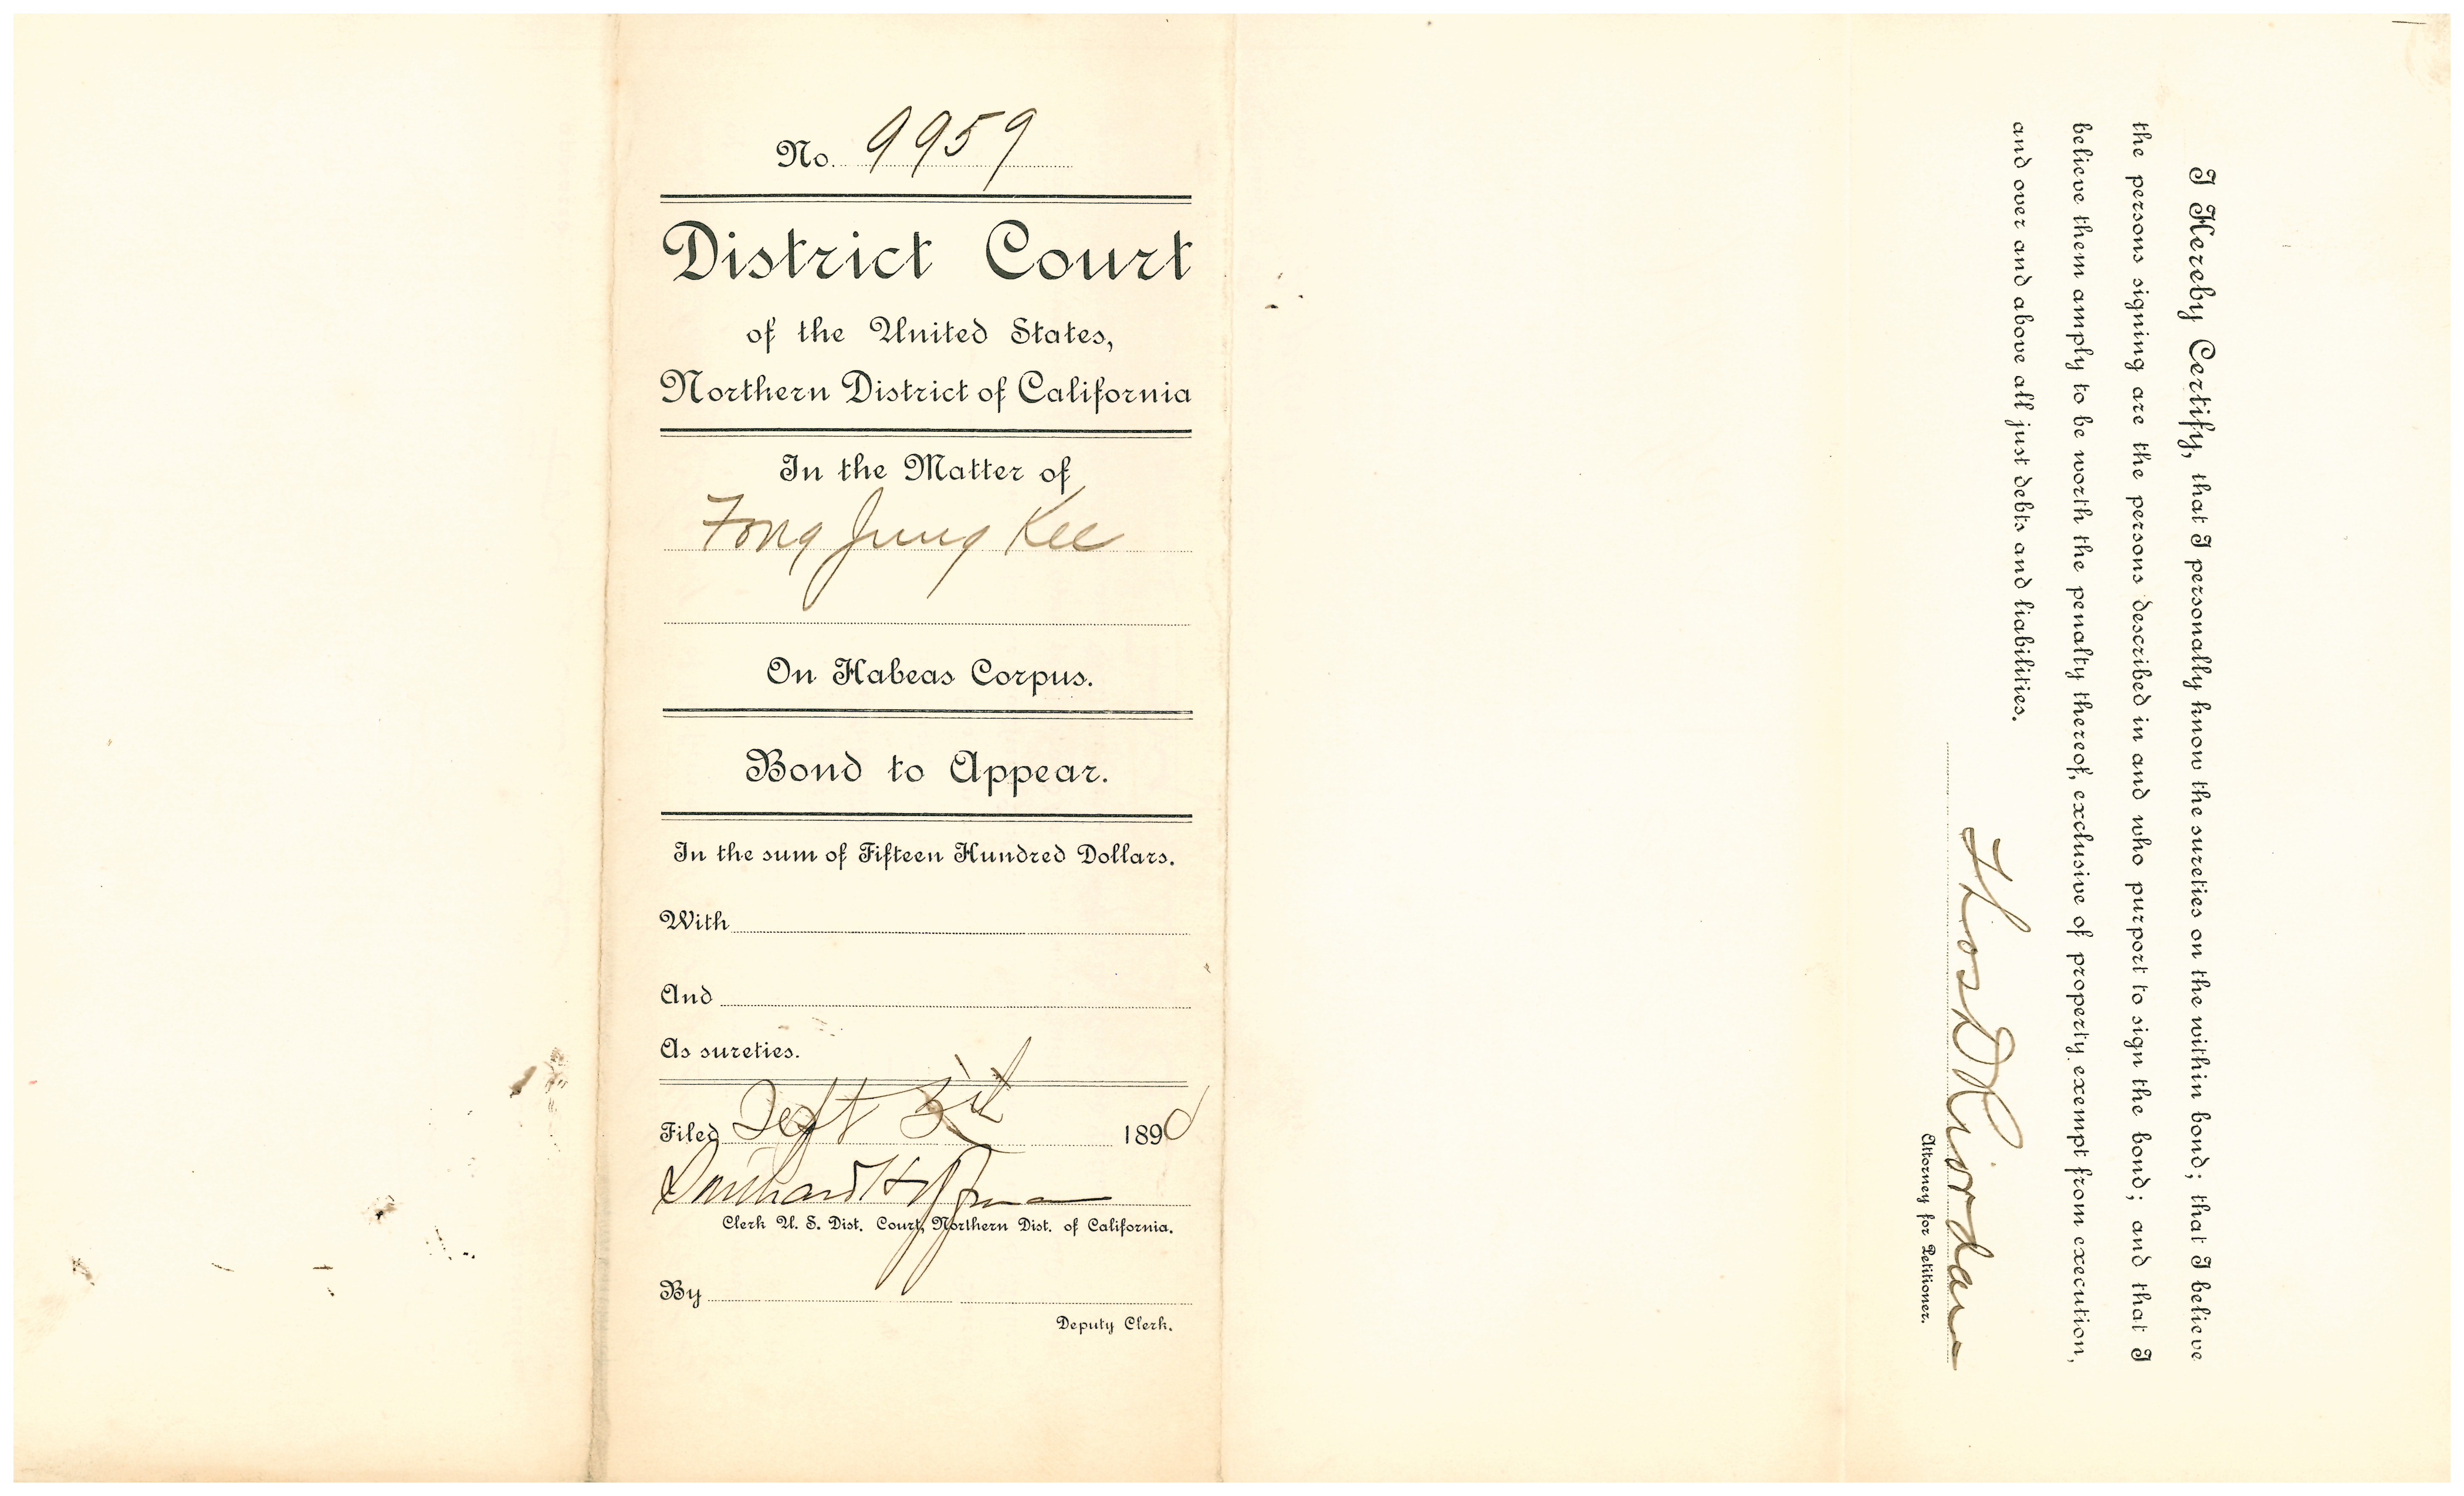 No. 9959
District Court
of the United States,
Northern District of California
In the Matter of
Fong Jung Kee
On Habeas Corpus.
Bond to Appear.
In the sum of Fifteen Hundred Dollars.
With
And
As sureties.
Filed Sept 3rd 1890
Southard Hoffman
Clerk U. S. Dist. Court, Northern Dist. of California.
By
Deputy Clerk.
I Hereby Certify, that I personally know the sureties on the within bond; that I believe
the persons signing are the persons described in and who purport to sign the bond; and that I
believe them amply to be worth the penalty thereof, exclusive of property exempt from execution,
and over and above all just debts and liabilities.
Thos D Riordan
Attorney for Petitioner.